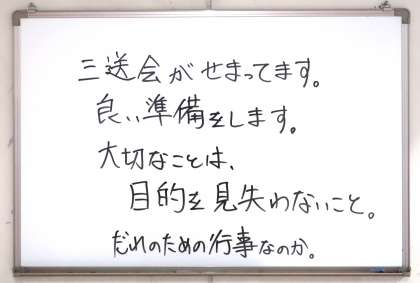 三送会がせまってます。
良い準備をします。
大切なことは、
目的を見失わないこと。
だれのための行事なのか。